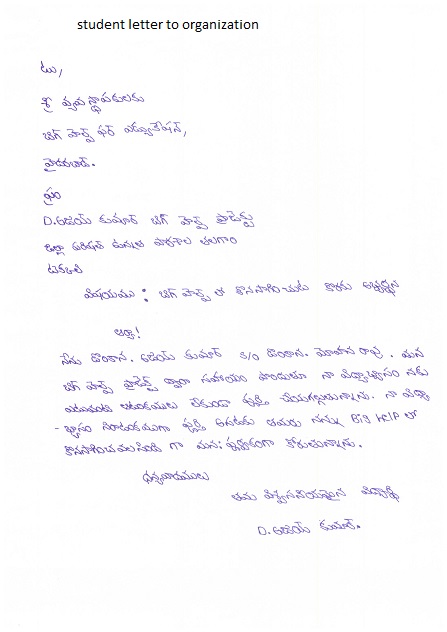 student letter to organization
టు,
శ్రీ వ్యవస్థాపకులకు
బిగ్ హెల్ప్ ఫర్ ఎడ్యుకేషన్,
హైదరాబాద్.
ఫ్రం
D. అజయ్ కుమార్ బిగ్ హెల్ప్ స్టూడెంట్
జిల్లా పరిషత్ ఉన్నత పాఠశాల తలగాం
టెక్కలి
విషయము : బిగ్ హెల్ప్ లో కొనసాగించుట కొరకు అభ్యర్థన
ఆర్యా!
నేను డొంకాన. అజయ్ కుమార్ S/o డొంకాన. మోహన రావు. మన
బిగ్ హెల్ప్ ద్వారా సహాయం పొందుతూ నా విద్యాభ్యాసం నకు
ఎటువంటి ఆటంకములు లేకుండా పూర్తి చేయగల్గుతున్నాను. నా విద్యా
- భ్యాసం నిరాటంకముగా పూర్తి అగుటకు తమరు నన్ను Big Help లో
కొనసాగించవలసింది గా మనః పూర్వకంగా కోరుతున్నాను.
ధన్యవాదములు
తమ విశ్వసనీయమైన విద్యార్థి
D. అజయ్ కుమార్.